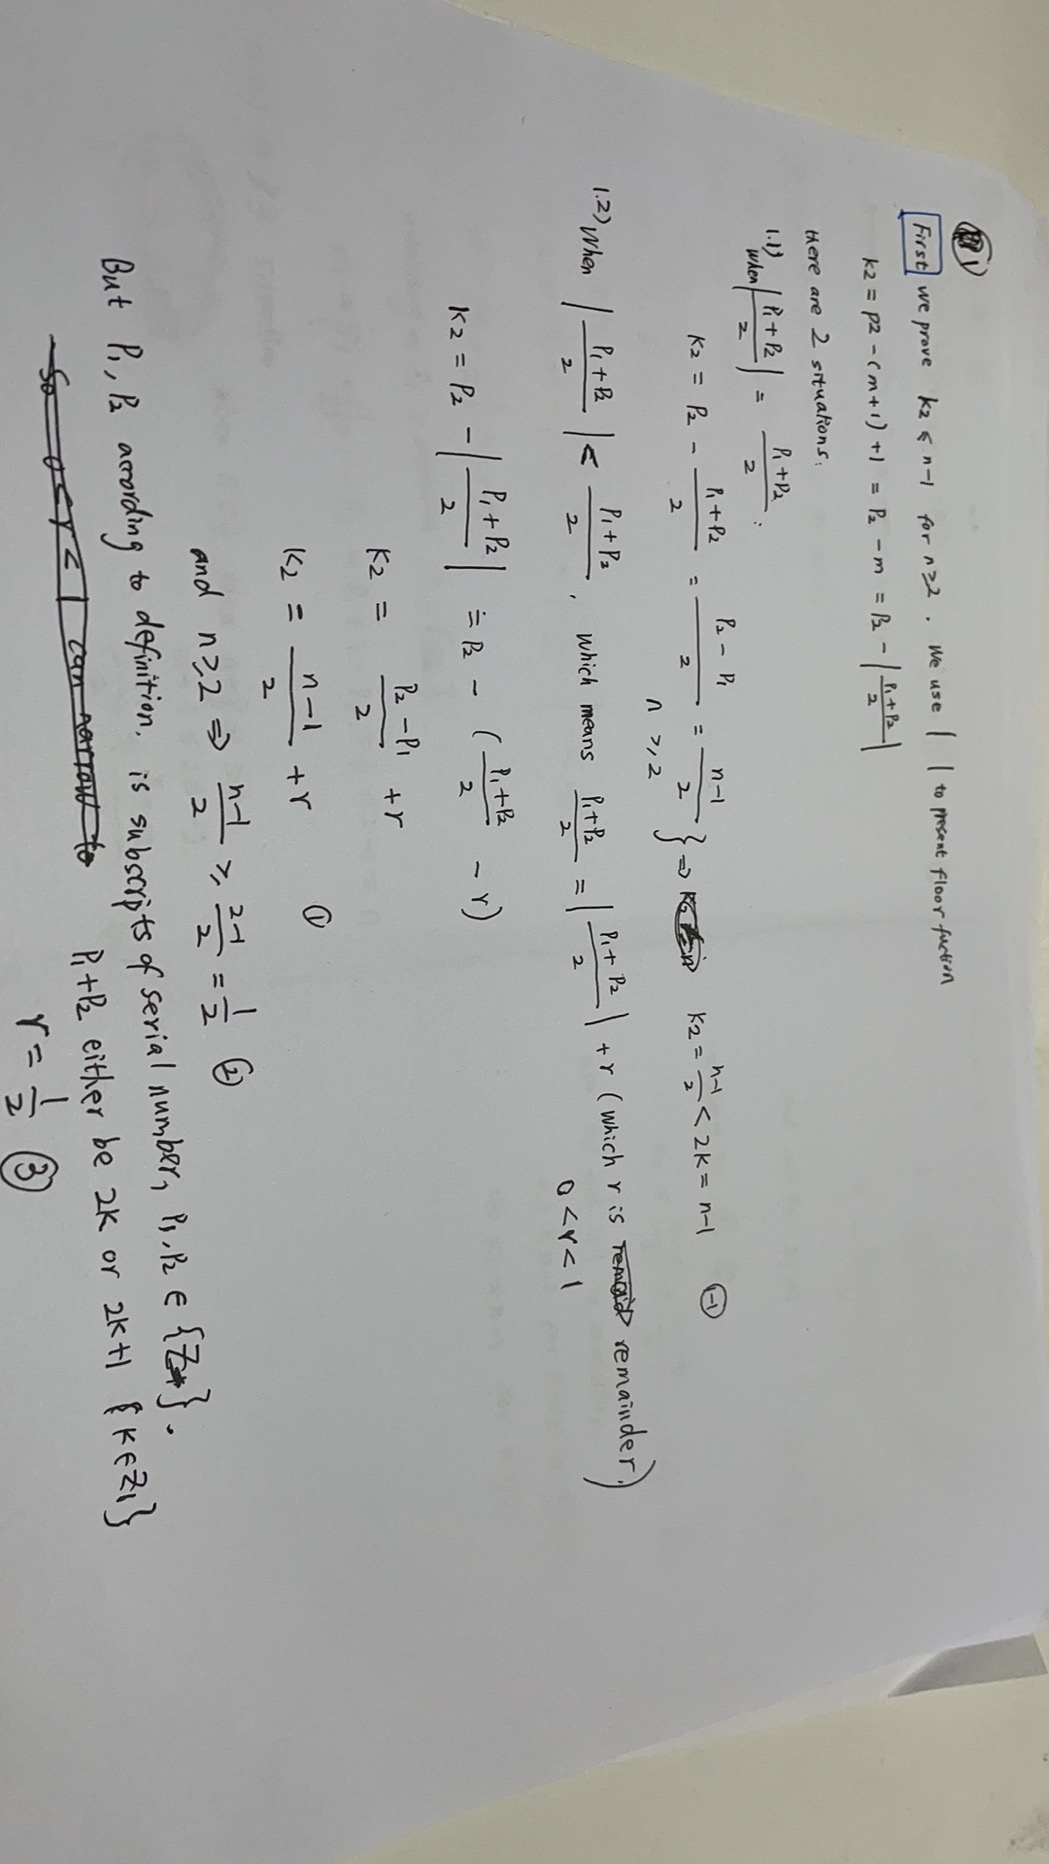 1)
First we prove k2 ≤ n-1 for n≥2. We use | | to present floor fuction
k2 = p2 - (m+1) + 1 = P2 - m = P2 - |(P1+P2)/2|
there are 2 situations:
1.1) when |(P1+P2)/2| = (P1+P2)/2 :
k2 = P2 - (P1+P2)/2 = (P2-P1)/2 = (n-1)/2 } ⇒ k2 = (n-1)/2 < 2k = n-1 (1-1)
n ≥ 2
1.2) when |(P1+P2)/2| < (P1+P2)/2, which means (P1+P2)/2 = |(P1+P2)/2| + r (which r is remainder.)
0<r<1
k2 = P2 - |(P1+P2)/2| = P2 - ((P1+P2)/2 - r)
k2 = (P2-P1)/2 + r
k2 = (n-1)/2 + r ①
and n≥2 ⇒ (n-1)/2 ≥ (2-1)/2 = 1/2 ②
But P1, P2 according to definition, is subscripts of serial number, P1, P2 ∈ {Z+}.
So 0<r<1 can narrow to P1+P2 either be 2k or 2k+1 {k∈Z1}
r = 1/2 ③